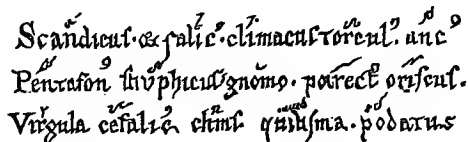 Scandicus · & salic⁹ · climacus torcul⁹ · anc⁹
Pentafon⁹ strophicus gnomo · porrect⁹ oriscus ·
Virgula cefalic⁹ clinis quilisma · podatus